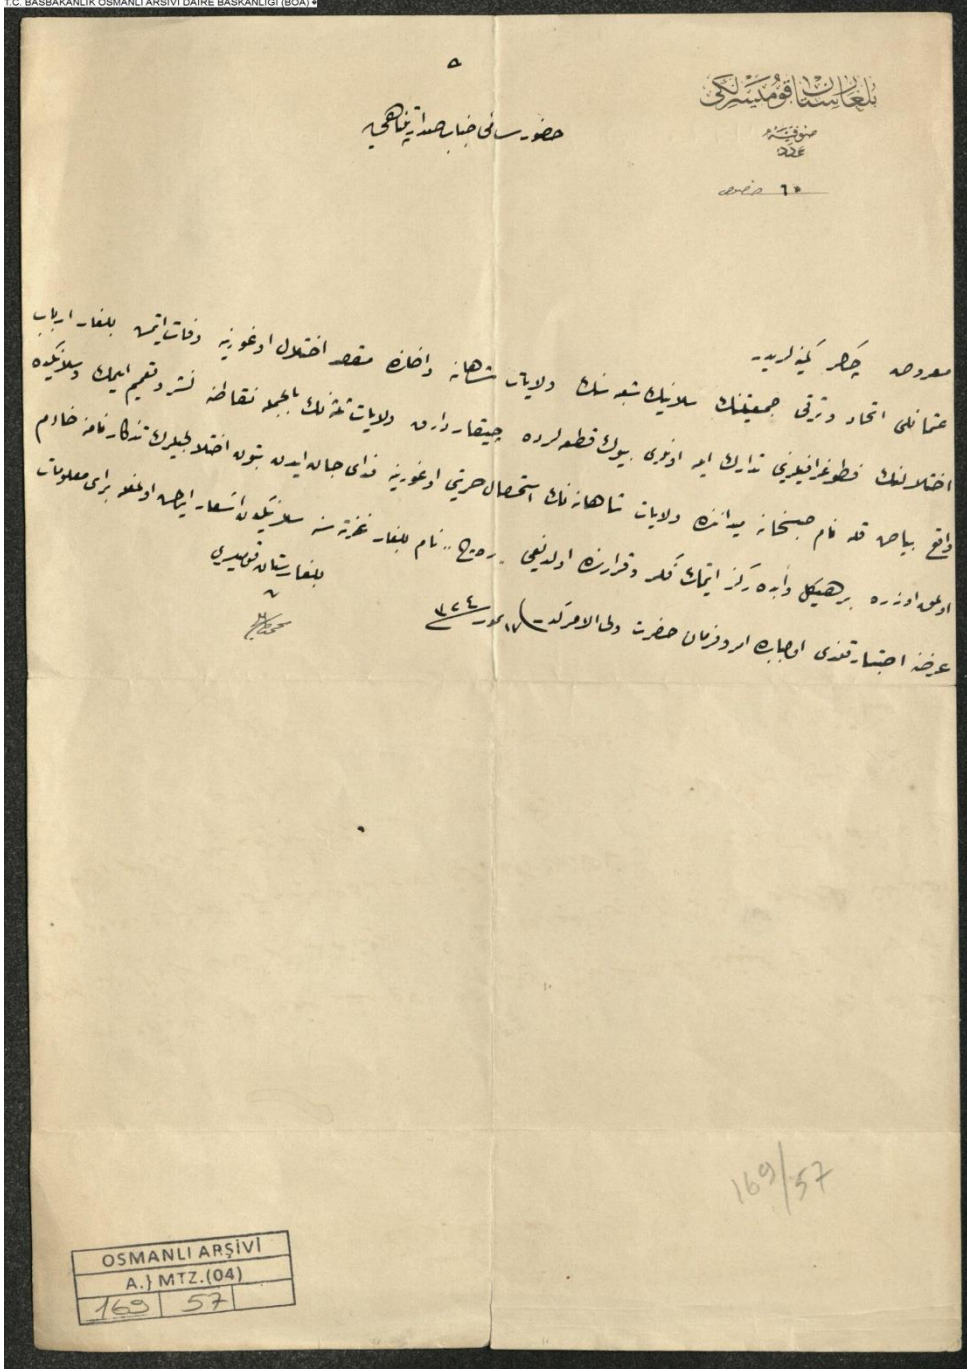 T.C. BAŞBAKANLIK OSMANLI ARŞİVİ DAİRE BAŞKANLIĞI (BOA)
بلغارستان قومیسرلكی
صوفیه
عدد
٦٥ خصوصی
حضور سامئ جناب صدارتپناهی‌یه
معروض چاكر كمینه‌لریدر
عثمانلی اتحاد و ترقی جمعیتنك سلانیك شعبه‌سنك ولایات شاهانه داخلنده مقصد اختلال اوغورینه وفات ایتمش بلغار ارباب
اختلالنك فطوغرافیلرینی تدارك ایله اونلری بیوك قطعه‌لرده چیقارارق ولایات ثلثه‌نك بالجمله نقاطنه نشر و تعمیم ایلمك و سلانیكده
واقع بیاض قله نام میداننده ولایات شاهانه‌نك استحصال حریتی اوغورینه فدای جان ایدن بتون اختلالجیلرك تذكار نامنه خادم
اولمق اوزره بر هیكل و آبده ركز ایتمك فكر و قرارنده اولدیغی نام بلغار غزته‌سنه سلانیكدن اشعار ایدلمش اولمغله برای معلومات
عرضنه ابتدار قلندی اولبابده امر و فرمان حضرت ولی الامركدر ١٧ تموز ٣٢٤
بلغارستان قومیسری
169/57
OSMANLI ARŞİVİ
A.} MTZ.(04)
169 57